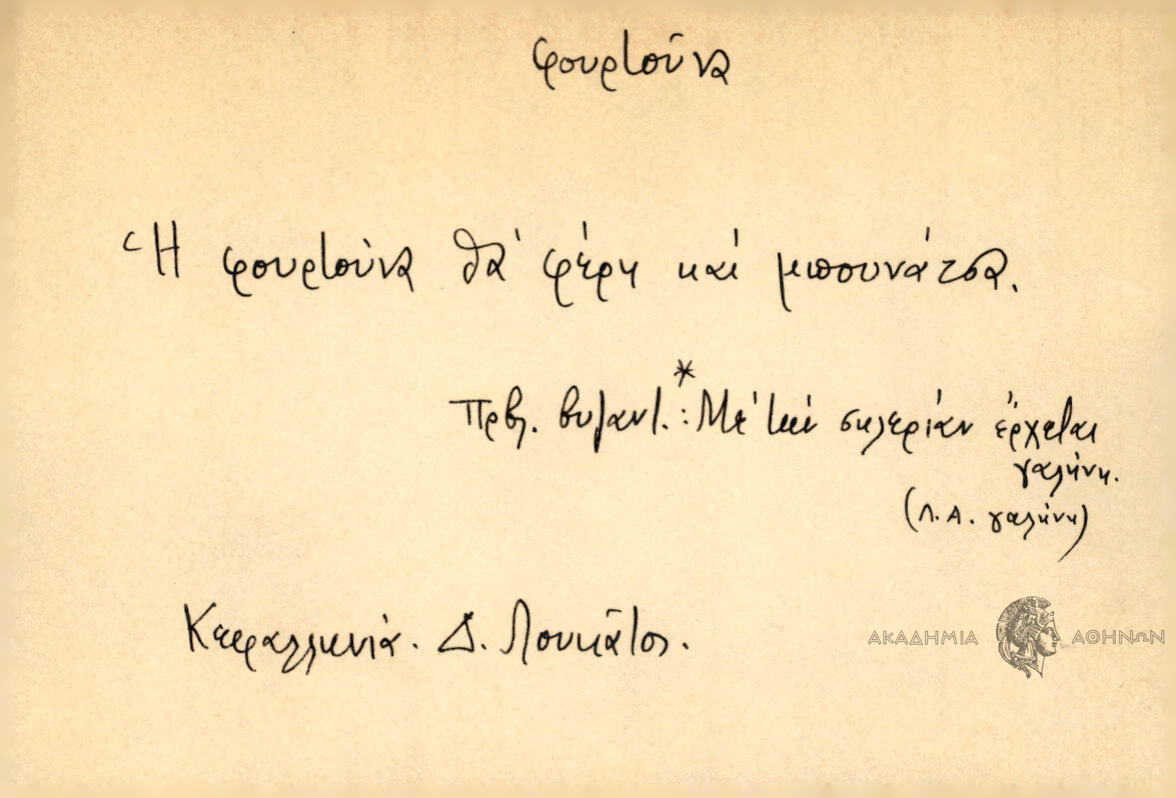 φουρτοῦνα
Ἡ φουρτούνα θὰ φέρῃ καὶ μπουνάτσα.
*
Πρβλ. βυζαντ.: Μὲ τὴ σκλεριὰν ἔρχεται
γαλήνη.
(Λ.Α. γαλήνη)
Κεφαλληνία. Δ. Λουκᾶτος.
ΑΚΑΔΗΜΙΑ ΑΘΗΝΩΝ